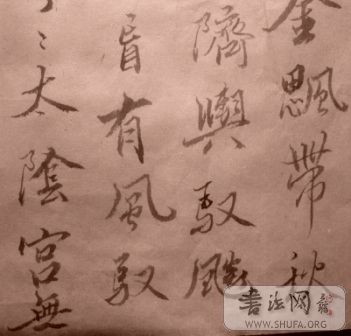 金颸帶秋
隮輿馭飈
盲有風馭
〻太陰宮無
書法网
WWW.SHUFA.ORG